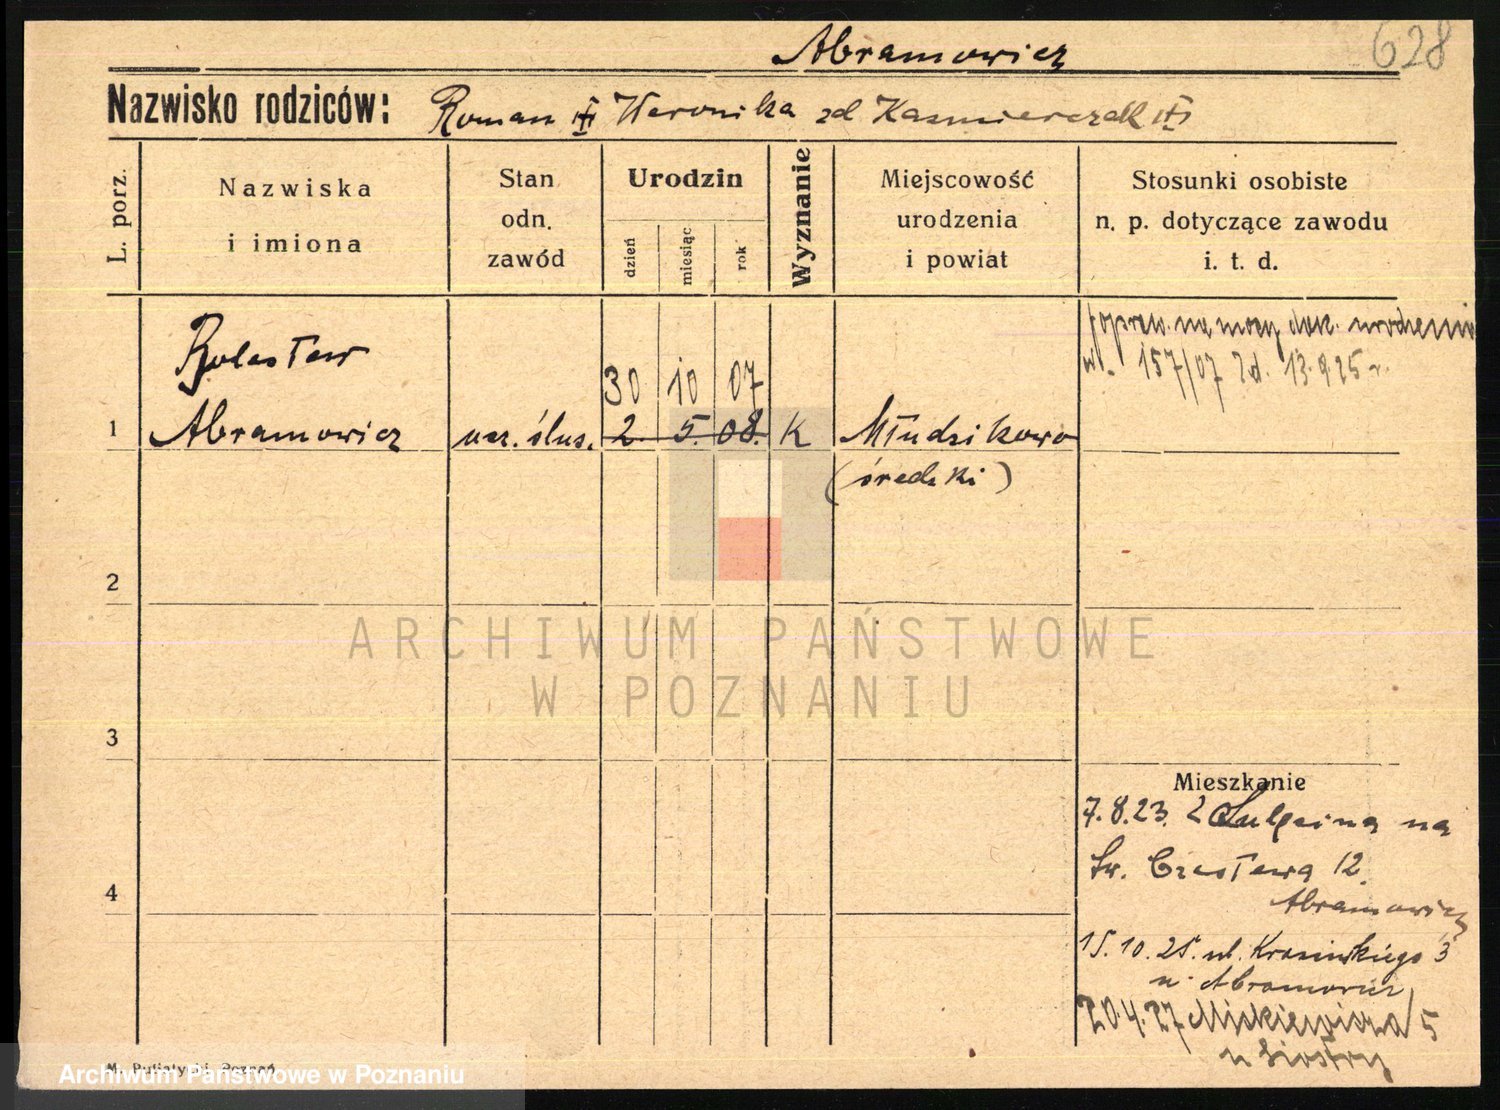 628
Abramowicz
Nazwisko rodziców: Roman Weronika zd Kaźmierczak
L. porz.
Nazwiska i imiona
Stan odn. zawód
Urodzin
dzień
miesiąc
rok
Wyznanie
Miejscowość urodzenia i powiat
Stosunki osobiste n. p. dotyczące zawodu i. t. d.
Bolesław
30 10 07
popraw. na mocy dok. urodzenia
157/07 13.9.25 r.
1 Abramowicz ucz. ślus. 2. 5. 08. K Młudzikowo
(średzki)
2
3
4
Mieszkanie
7.8.23. z Sulęcina na
Św. Czesława 12
Abramowicz
15.10.25. ul. Krasińskiego 3
u Abramowicz
20.4.27 Mickiewicza 5
u siostry
M. Putiatycki, Poznań
ARCHIWUM PAŃSTWOWE
W POZNANIU
Archiwum Państwowe w Poznaniu